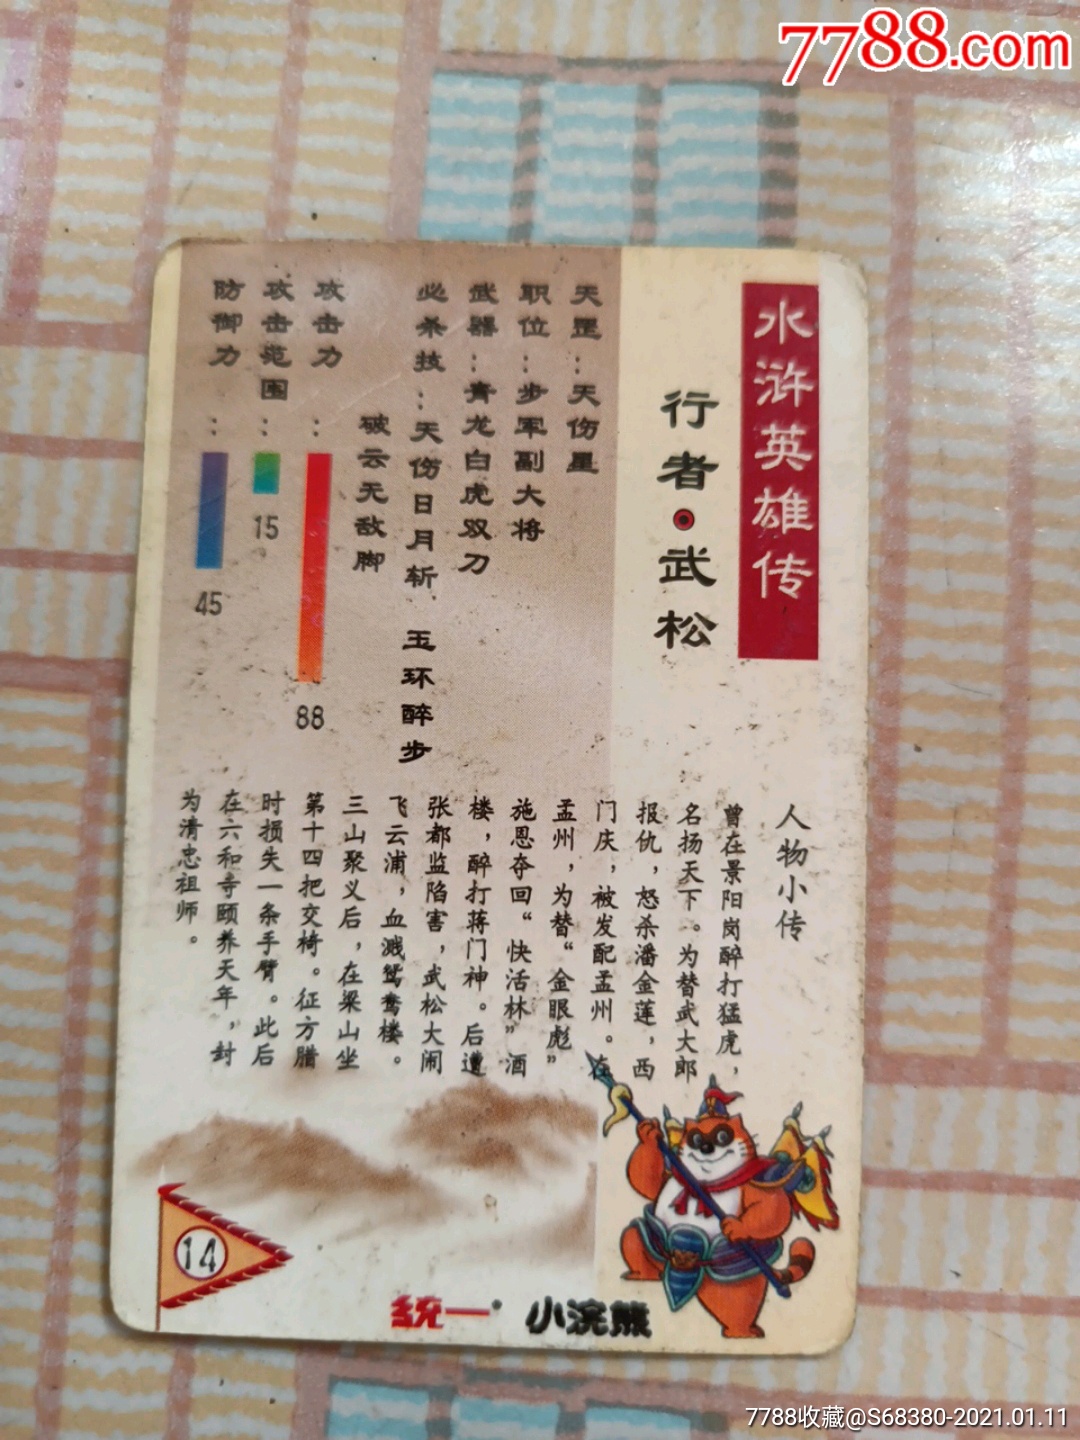 7788.com
水浒英雄传
行者·武松
天罡：天伤星
职位：步军副大将
武器：青龙白虎双刀
必杀技：天伤日月斩 玉环醉步
破云无敌脚
攻击力：
88
攻击范围：
15
防御力：
45
人物小传
曾在景阳岗醉打猛虎，
名扬天下。为替武大郎
报仇，怒杀潘金莲，西
门庆，被发配孟州。在
孟州，为替“金眼彪”
施恩夺回“快活林”酒
楼，醉打蒋门神。后遭
张都监陷害，武松大闹
飞云浦，血溅鸳鸯楼。
三山聚义后，在梁山坐
第十四把交椅。征方腊
时损失一条手臂。此后
在六和寺颐养天年，封
为清忠祖师。
14
统一 小浣熊
7788收藏@S68380-2021.01.11